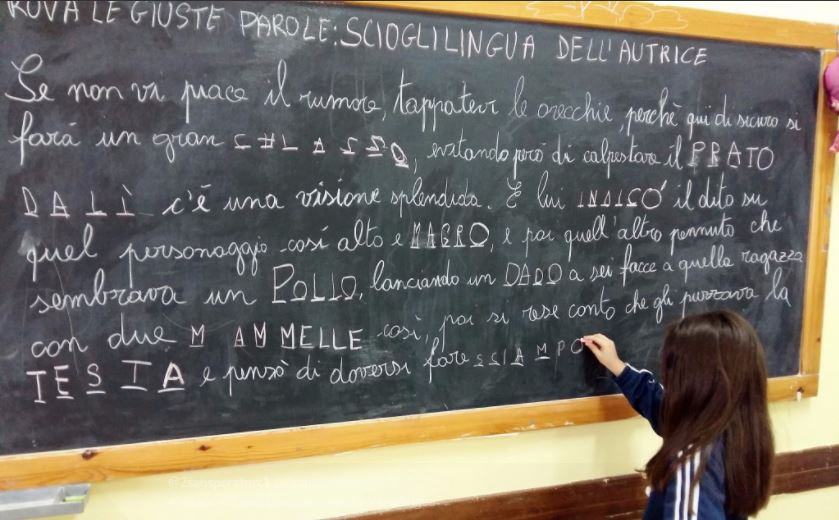 ROVA LE GIUSTE PAROLE: SCIOGLILINGUA DELL'AUTRICE
Se non vi piace il rumore, tappatevi le orecchie, perchè qui di sicuro si
farà un gran CHIASSO, evitando però di calpestare il PRATO
DA LÌ c'è una visione splendida. E lui INDICO' il dito su
quel personaggio così alto e MAGRO, e poi quell'altro pennuto che
sembrava un POLLO, lanciando un DADO a sei facce a quella ragazza
con due MAMMELLE così, poi si rese conto che gli puzzava la
TESTA e pensò di doversi fare SCIAMPO